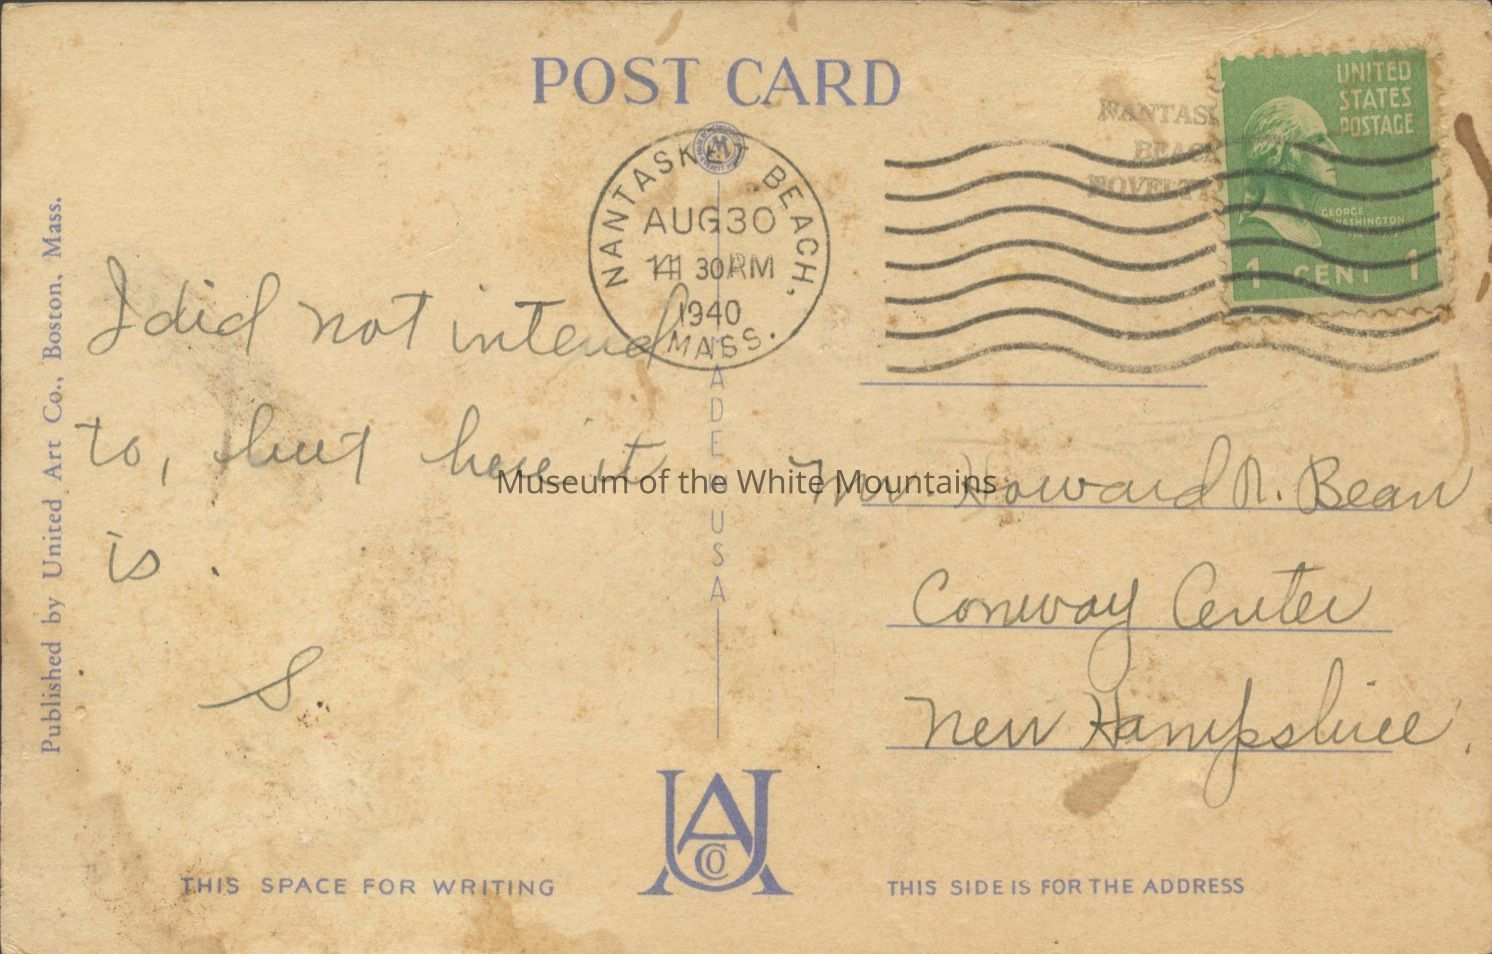 POST CARD
UNITED
STATES
POSTAGE
GEORGE
WASHINGTON
1 CENT 1
NANTASK
BEACH
NOVELTY
NANTASKET BEACH,
AUG 30
30 PM
1940
MASS.
Published by United Art Co., Boston, Mass.
I did not intend
to, but here it
is.
S.
MADE IN USA
Museum of the White Mountains
Howard R. Bean
Conway Center
New Hampshire.
UACO
THIS SPACE FOR WRITING
THIS SIDE IS FOR THE ADDRESS